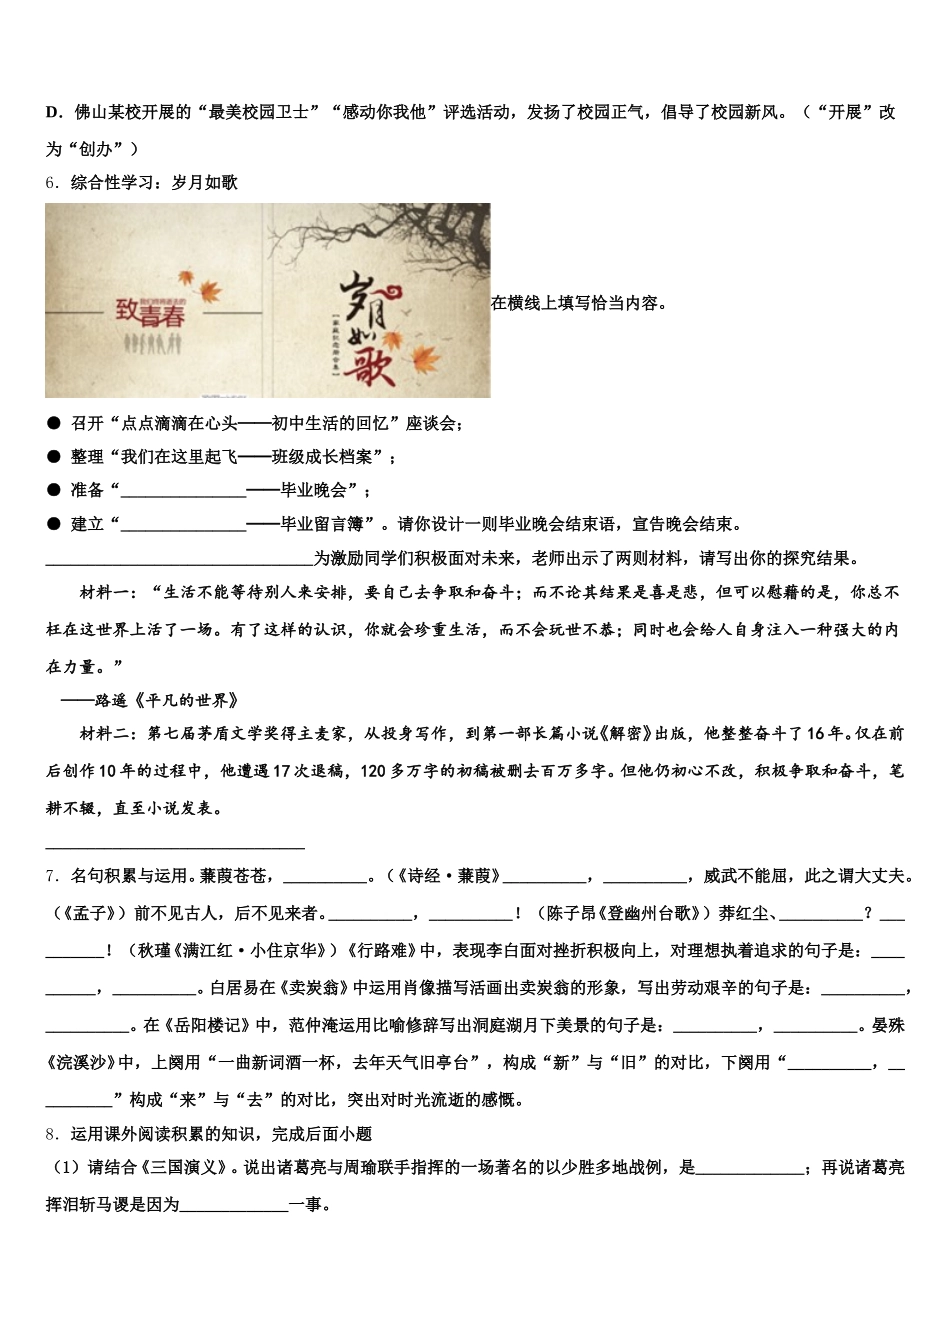 D．佛山某校开展的“最美校园卫士”“感动你我他”评选活动，发扬了校园正气，倡导了校园新风。（“开展”改
为“创办”）
6．综合性学习：岁月如歌
致我们终将逝去的青春
岁月如歌
在横线上填写恰当内容。
● 召开“点点滴滴在心头——初中生活的回忆”座谈会；
● 整理“我们在这里起飞——班级成长档案”；
● 准备“_______________——毕业晚会”；
● 建立“_______________——毕业留言簿”。请你设计一则毕业晚会结束语，宣告晚会结束。
________________________________为激励同学们积极面对未来，老师出示了两则材料，请写出你的探究结果。
材料一：“生活不能等待别人来安排，要自己去争取和奋斗；而不论其结果是喜是悲，但可以慰藉的是，你总不
枉在这世界上活了一场。有了这样的认识，你就会珍重生活，而不会玩世不恭；同时也会给人自身注入一种强大的内
在力量。”
——路遥《平凡的世界》
材料二：第七届茅盾文学奖得主麦家，从投身写作，到第一部长篇小说《解密》出版，他整整奋斗了16年。仅在前
后创作10年的过程中，他遭遇17次退稿，120多万字的初稿被删去百万多字。但他仍初心不改，积极争取和奋斗，笔
耕不辍，直至小说发表。
_______________________________
7．名句积累与运用。蒹葭苍苍，__________。（《诗经·蒹葭》__________，__________，威武不能屈，此之谓大丈夫。
（《孟子》）前不见古人，后不见来者。__________，__________！（陈子昂《登幽州台歌》）莽红尘、__________？___
_______！（秋瑾《满江红·小住京华》）《行路难》中，表现李白面对挫折积极向上，对理想执着追求的句子是：____
______，__________。白居易在《卖炭翁》中运用肖像描写活画出卖炭翁的形象，写出劳动艰辛的句子是：__________，
__________。在《岳阳楼记》中，范仲淹运用比喻修辞写出洞庭湖月下美景的句子是：__________，__________。晏殊
《浣溪沙》中，上阕用“一曲新词酒一杯，去年天气旧亭台”，构成“新”与“旧”的对比，下阕用“__________，__
________”构成“来”与“去”的对比，突出对时光流逝的感慨。
8．运用课外阅读积累的知识，完成后面小题
（1）请结合《三国演义》。说出诸葛亮与周瑜联手指挥的一场著名的以少胜多地战例，是_____________；再说诸葛亮
挥泪斩马谡是因为_____________一事。